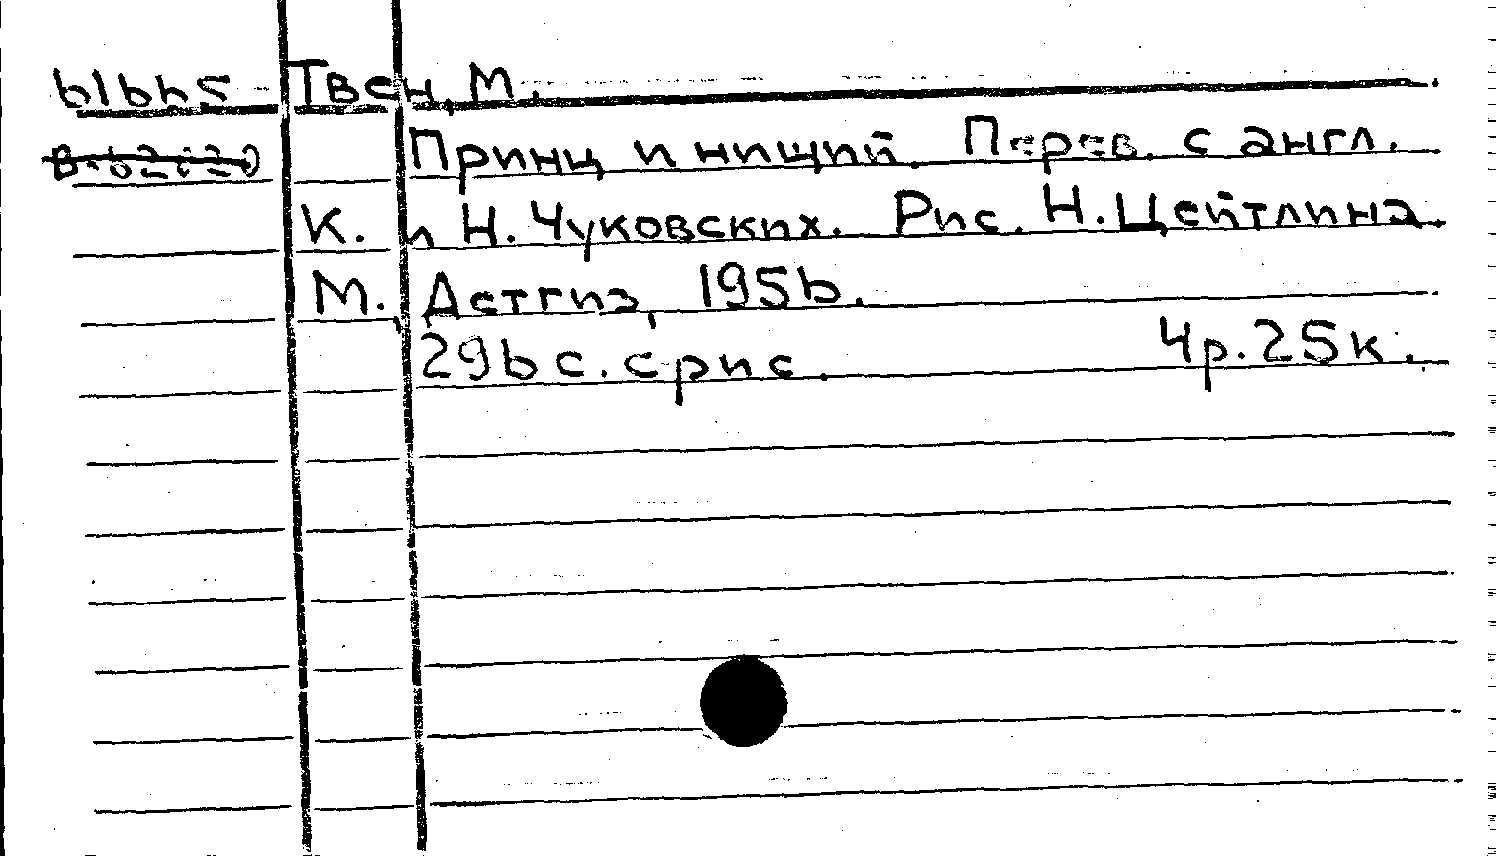 61645 Твен, М.
Принц и нищий. Перев. с англ.
К. и Н. Чуковских. Рис. Н. Цейтлина.
М., Детгиз, 1956.
296 с. с рис. 4р. 25к.